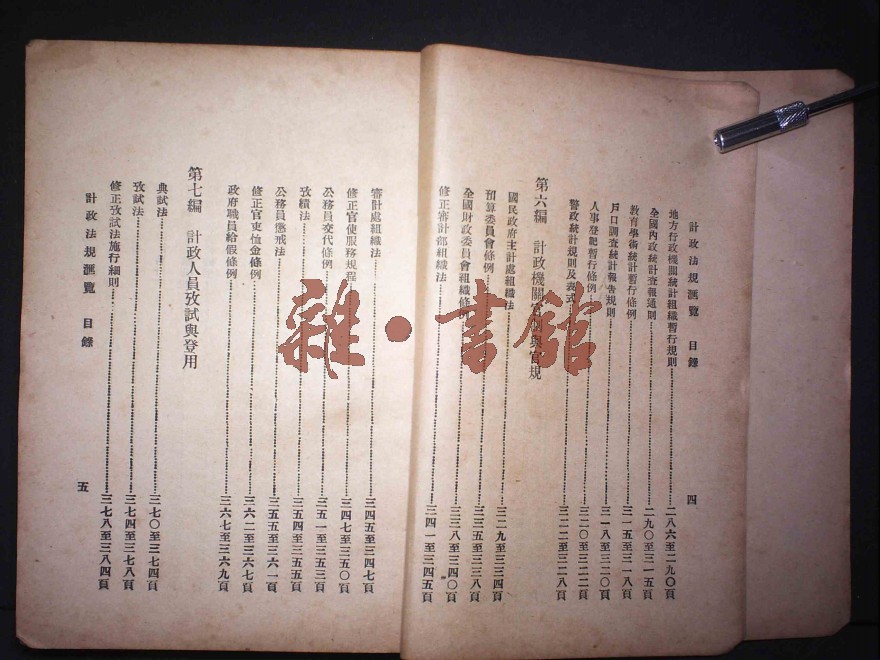 計政法規匯覽 目錄 四
地方行政機關統計組織暫行規則 二八六至二九〇頁
全國內政統計查報通則 二九〇至三一五頁
教育學術統計暫行條例 三一五至三一八頁
戶口調查統計報告規則 三一八至三二〇頁
人事登記暫行條例 三二〇至三二二頁
警政統計規則及表式 三二二至三二八頁
第六編 計政機關官制與官規
國民政府主計處組織法 三二九至三三四頁
預算委員會條例 三三五至三三八頁
全國財政委員會組織條 三三八至三四〇頁
修正審計部組織法 三四一至三四五頁
審計處組織法 三四五至三四七頁
修正官吏服務規程 三四七至三五〇頁
公務員交代條例 三五一至三五三頁
攷績法 三五四至三五五頁
公務員懲戒法 三五五至三六一頁
修正官吏恤金條例 三六二至三六七頁
政府職員給假條例 三六七至三六九頁
第七編 計政人員攷試與登用
典試法 三七〇至三七四頁
攷試法 三七四至三七八頁
修正攷試法施行細則 三七八至三八四頁
計政法規匯覽 目錄 五
雜·書館